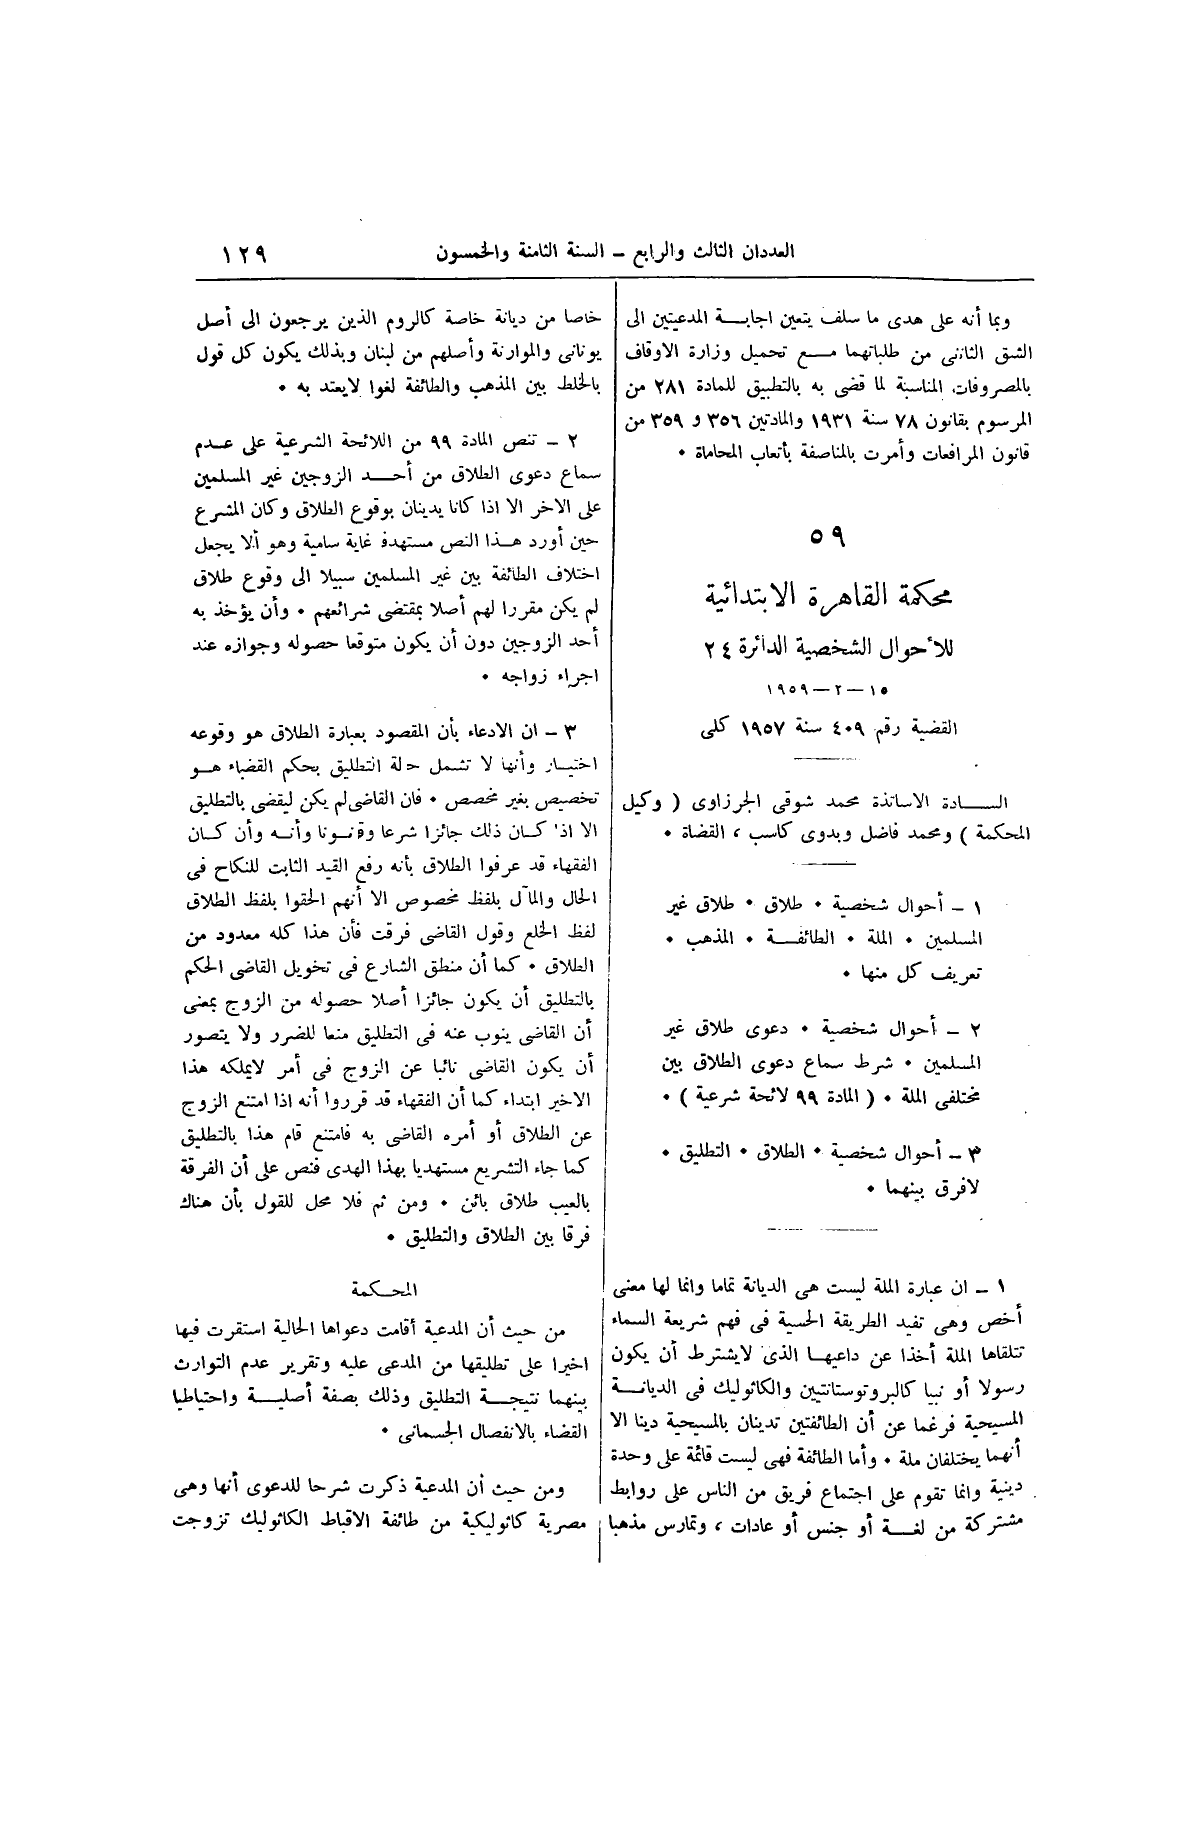 العددان الثالث والرابع – السنة الثامنة والخمسون
١٢٩
وبما أنه على هدى ما سلف يتعين اجابة المدعيتين الى
الشق الثانى من طلباتهما مع تحميل وزارة الاوقاف
بالمصروفات المناسبة لما قضى به بالتطبيق للمادة ٢٨١ من
المرسوم بقانون ٧٨ سنة ١٩٣١ والمادتين ٣٥٦ و ٣٥٩ من
قانون المرافعات وأمرت بالمناصفة بأتعاب المحاماة .
٥٩
محكمة القاهرة الابتدائية
للأحوال الشخصية الدائرة ٢٤
١٥ – ٢ – ١٩٥٩
القضية رقم ٤٠٩ سنة ١٩٥٧ كلى
السادة الاساتذة محمد شوقى الجرزاوى ( وكيل
المحكمة ) ومحمد فاضل وبدوى كاسب ، القضاة .
١ – أحوال شخصية . طلاق . طلاق غير
المسلمين . الملة . الطائفة . المذهب .
تعريف كل منها .
٢ – أحوال شخصية . دعوى طلاق غير
المسلمين . شرط سماع دعوى الطلاق بين
مختلفى الملة . ( المادة ٩٩ لائحة شرعية ) .
٣ – أحوال شخصية . الطلاق . التطليق .
لافرق بينهما .
١ – ان عبارة الملة ليست هى الديانة تماما وانما لها معنى
أخص وهى تفيد الطريقة الحسية فى فهم شريعة السماء
تتلقاها الملة أخذا عن داعيها الذى لايشترط أن يكون
رسولا أو نبيا كالبروتوستانتيين والكاثوليك فى الديانة
المسيحية فرغما عن أن الطائفتين تدينان بالمسيحية دينا الا
أنهما يختلفان ملة . وأما الطائفة فهى ليست قائمة على وحدة
دينية وانما تقوم على اجتماع فريق من الناس على روابط
مشتركة من لغة أو جنس أو عادات ، وتمارس مذهبا
خاصا من ديانة خاصة كالروم الذين يرجعون الى أصل
يونانى والموارنة وأصلهم من لبنان وبذلك يكون كل قول
بالخلط بين المذهب والطائفة لغوا لايعتد به .
٢ – تنص المادة ٩٩ من اللائحة الشرعية على عدم
سماع دعوى الطلاق من أحد الزوجين غير المسلمين
على الاخر الا اذا كانا يدينان بوقوع الطلاق وكان المشرع
حين أورد هذا النص مستهدفا غاية سامية وهو ألا يجعل
اختلاف الطائفة بين غير المسلمين سبيلا الى وقوع طلاق
لم يكن مقررا لهم أصلا بمقتضى شرائعهم . وأن يؤخذ به
أحد الزوجين دون أن يكون متوقعا حصوله وجوازه عند
اجراء زواجه .
٣ – ان الادعاء بأن المقصود بعبارة الطلاق هو وقوعه
اختيار وأنها لا تشمل حلة التطليق بحكم القضاء هو
تخصيص بغير مخصص . فان القاضى لم يكن ليقضى بالتطليق
الا اذا كان ذلك جائزا شرعا وقانونا وأنه وأن كان
الفقهاء قد عرفوا الطلاق بأنه رفع القيد الثابت للنكاح فى
الحال والمآل بلفظ مخصوص الا أنهم الحقوا بلفظ الطلاق
لفظ الخلع وقول القاضى فرقت فأن هذا كله معدود من
الطلاق . كما أن منطق الشارع فى تخويل القاضى الحكم
بالتطليق أن يكون جائزا أصلا حصوله من الزوج بمعنى
أن القاضى ينوب عنه فى التطليق منعا للضرر ولا يتصور
أن يكون القاضى نائبا عن الزوج فى أمر لايملكه هذا
الاخير ابتداء كما أن الفقهاء قد قرروا أنه اذا امتنع الزوج
عن الطلاق أو أمره القاضى به فامتنع قام هذا بالتطليق
كما جاء التشريع مستهديا بهذا الهدى فنص على أن الفرقة
بالعيب طلاق بائن . ومن ثم فلا محل للقول بأن هناك
فرقا بين الطلاق والتطليق .
المحكمة
من حيث أن المدعية أقامت دعواها الحالية استقرت فيها
اخيرا على تطليقها من المدعى عليه وتقرير عدم التوارث
بينهما نتيجة التطليق وذلك بصفة أصلية واحتياطيا
القضاء بالانفصال الجسمانى .
ومن حيث أن المدعية ذكرت شرحا للدعوى أنها وهى
مصرية كاثوليكية من طائفة الاقباط الكاثوليك تزوجت